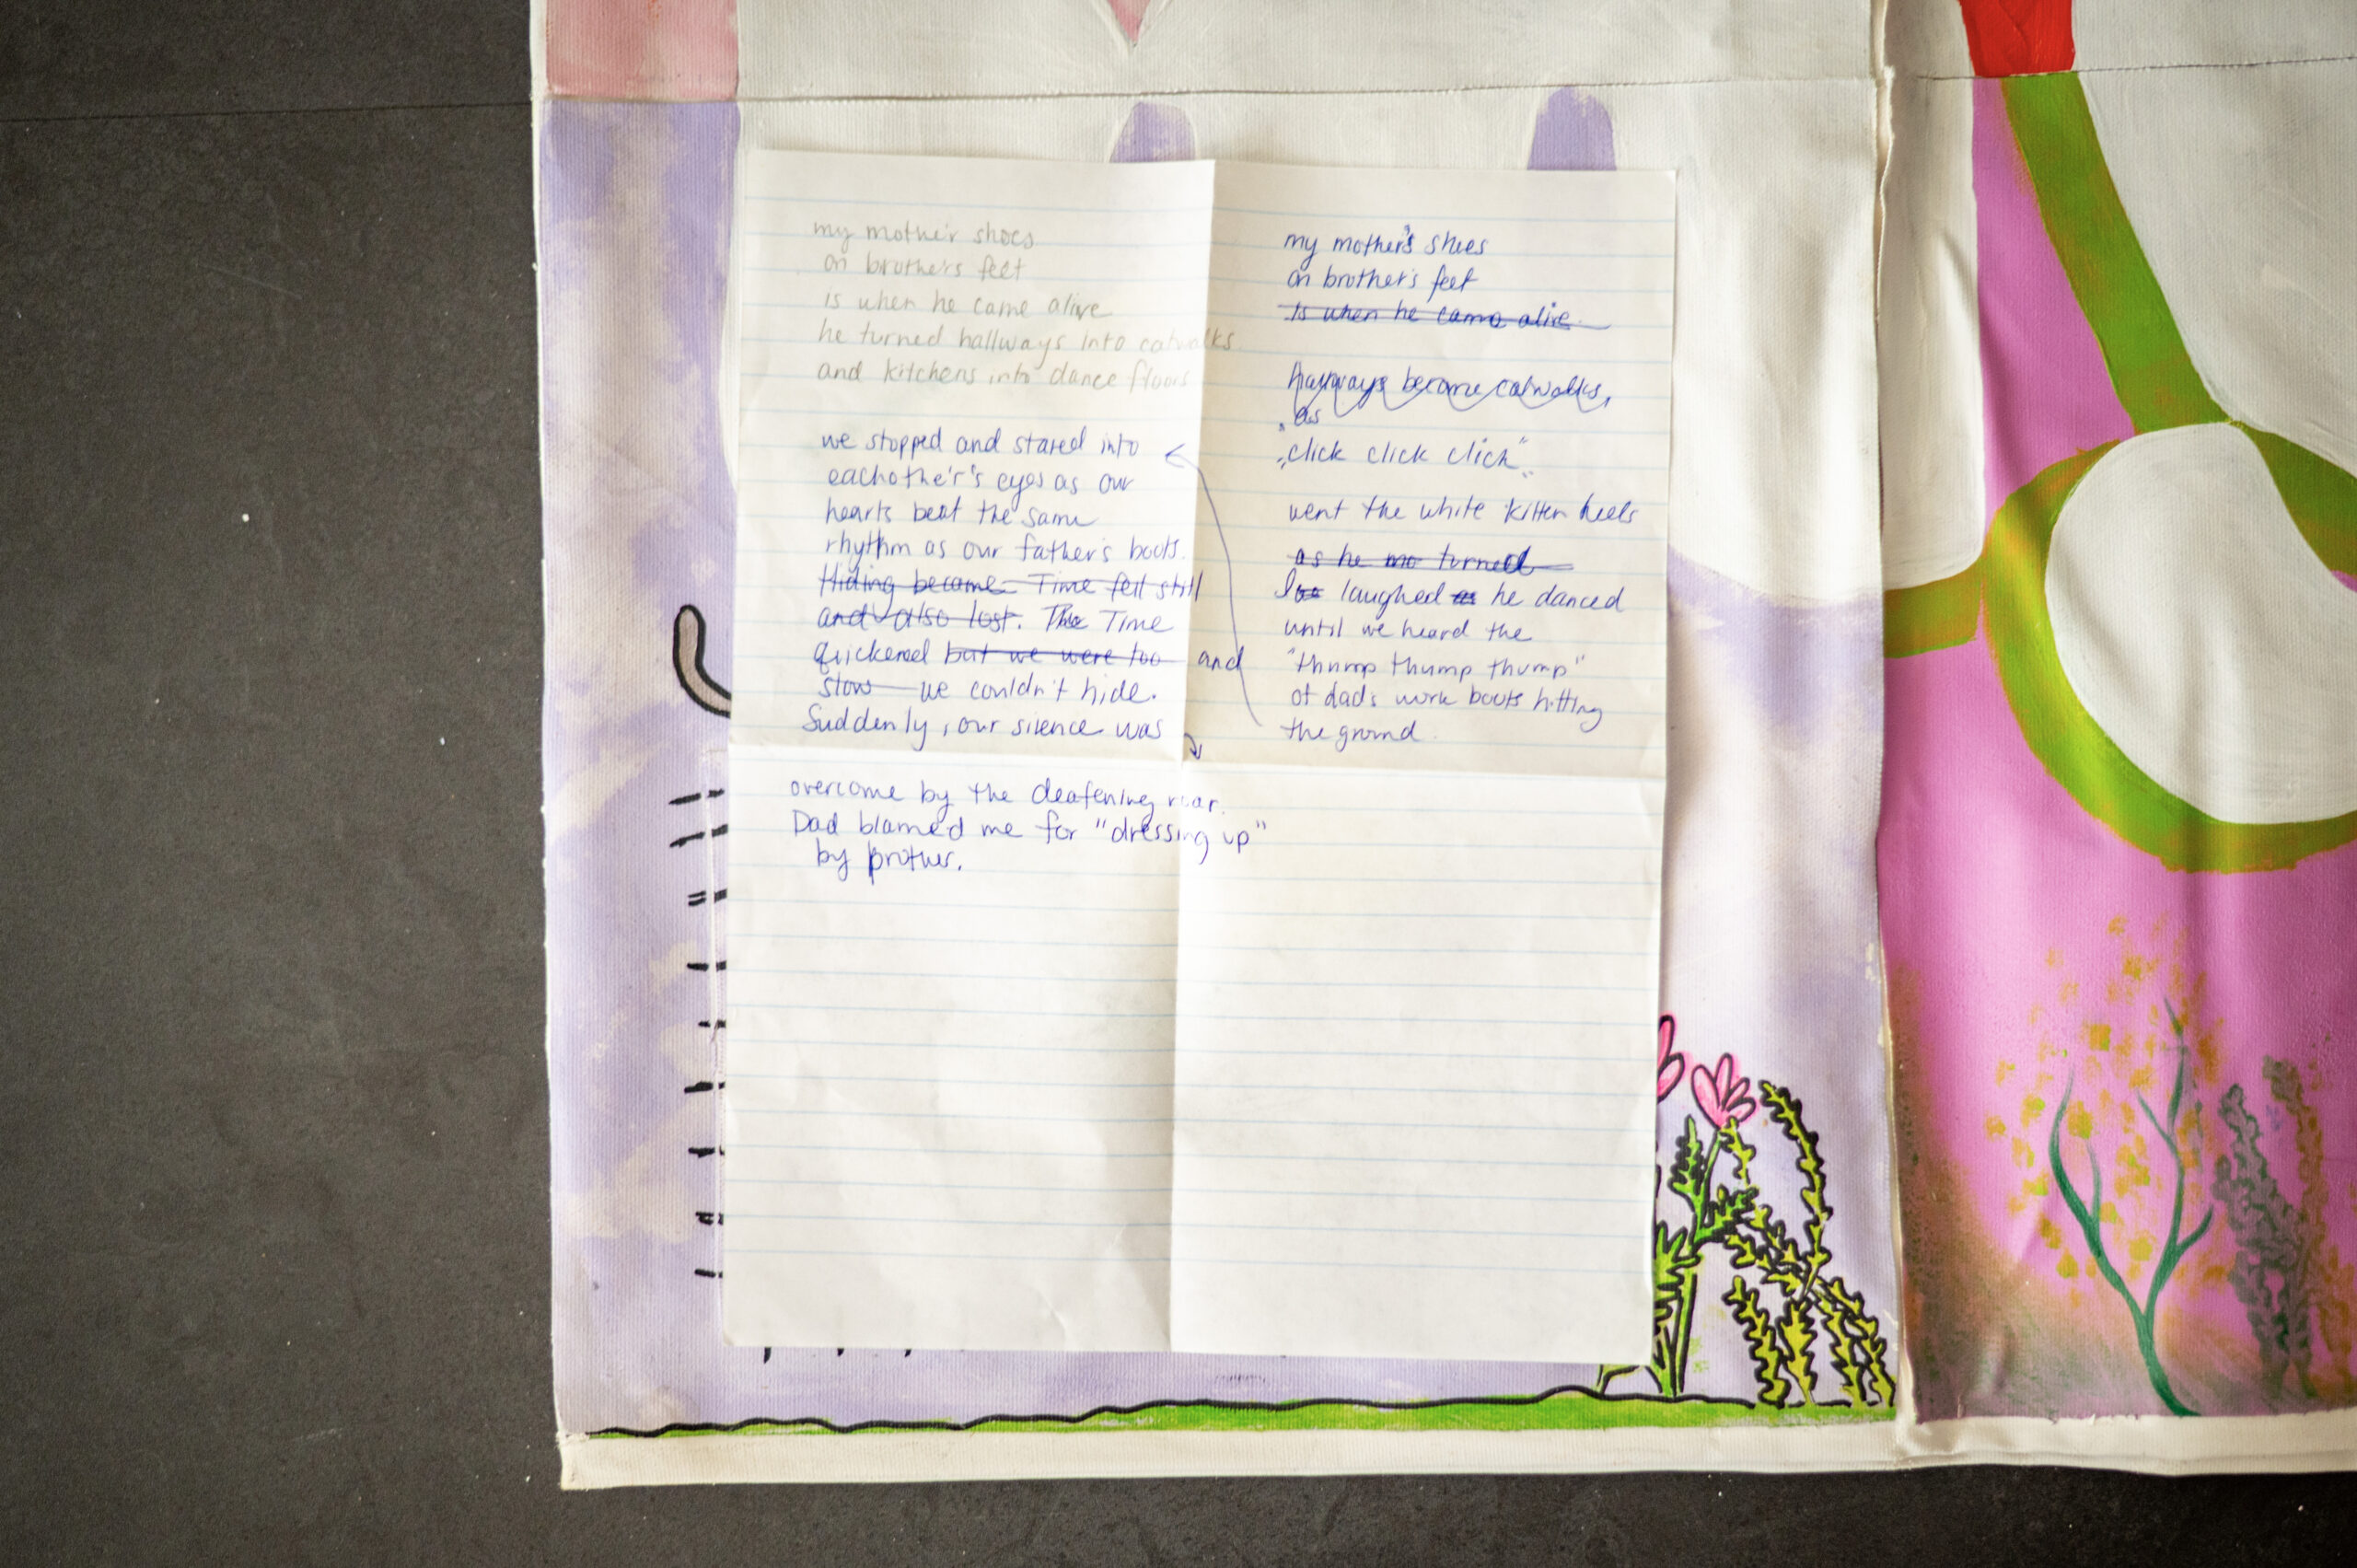 my mother shoes
on brother's feet
is when he came alive
he turned hallways into catwalks
and kitchens into dance floors
my mother's shoes
on brother's feet
is when he came alive
hallways became catwalks,
as
"click click click"
went the white kitten heels
as he mo turned
I laughed as he danced
until we heard the
"thump thump thump"
of dad's work boots hitting
the ground.
we stopped and stared into
eachother's eyes as our
hearts beat the same
rhythm as our father's boots.
Hiding became Time fell still
and also lost. The Time
quickened but we were too and
slow we couldn't hide.
Suddenly, our silence was
overcome by the deafening roar.
Dad blamed me for "dressing up"
by brother.